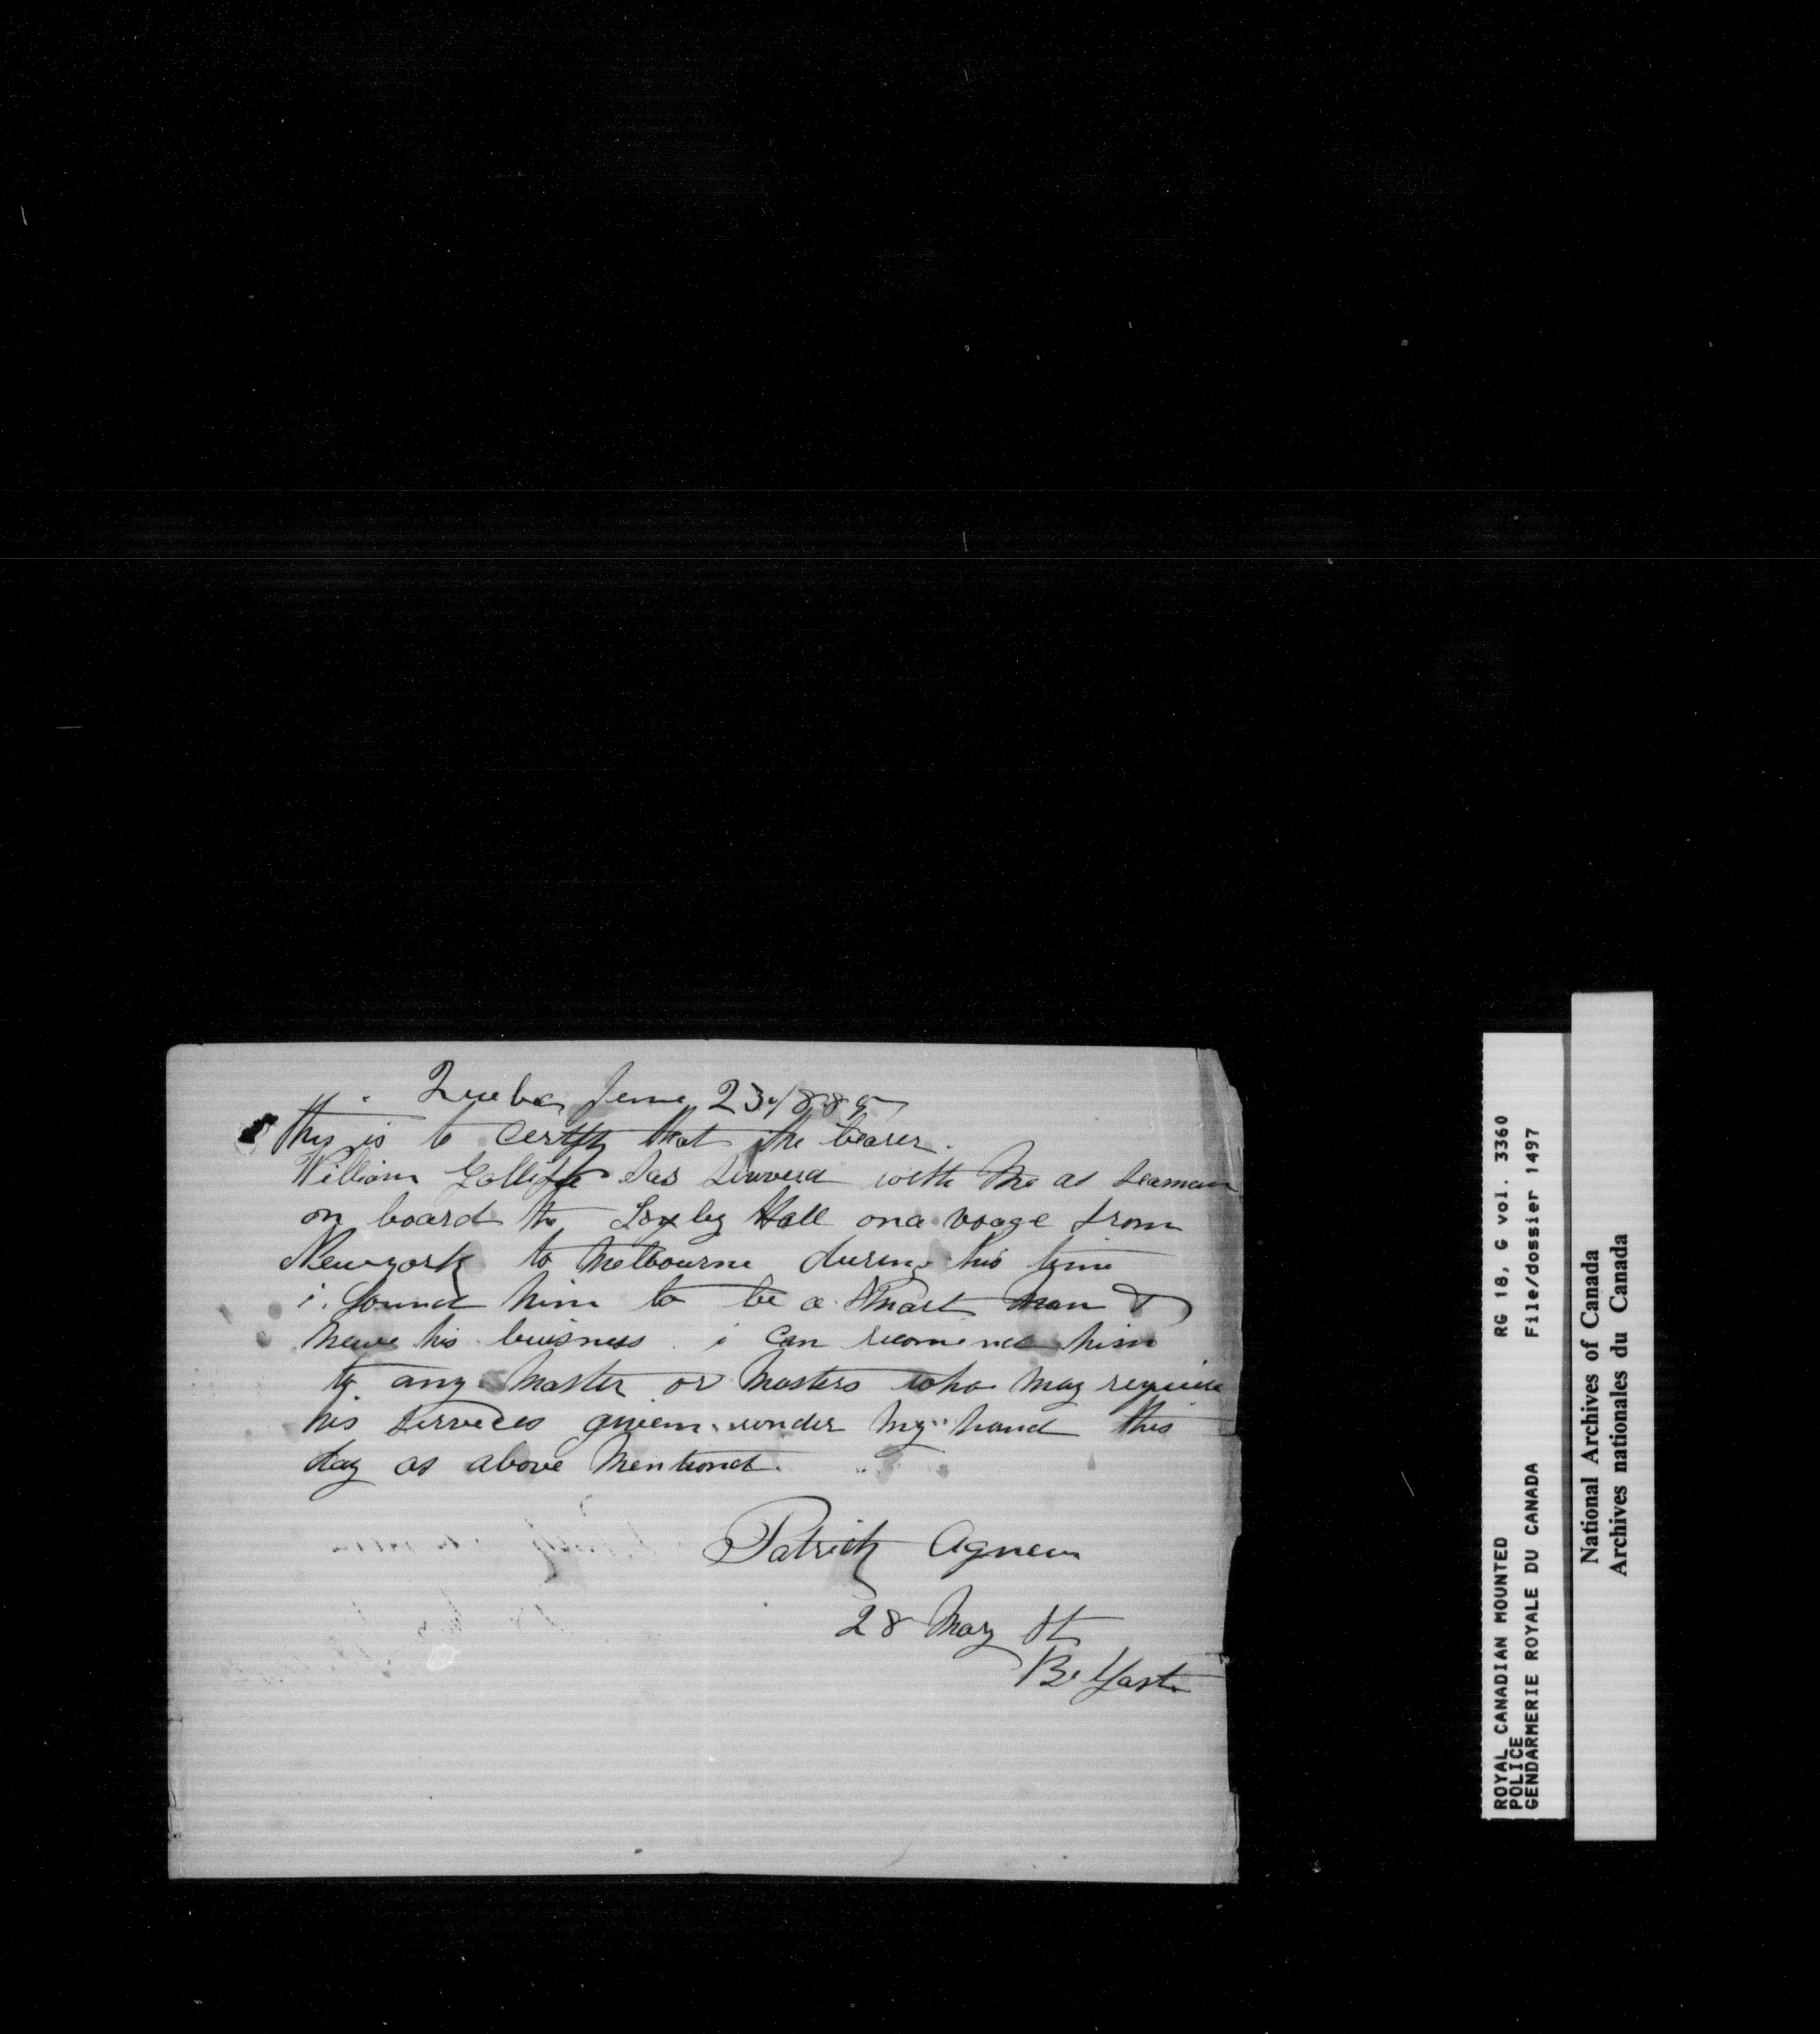 Quebec June 23/1885
this is to Certify that the bearer.
William has with Me as Seaman
on board the Loxley Hall on a voage from
Newyork to Melbourne during his time
i found him to be a Smart Man &
his buisness i Can recomend him
to any Master or Masters who May require
his under My hand this
day as above Mentiond.
Patrick Agnew
28 May St
Belfast
ROYAL CANADIAN MOUNTED RG 18, G vol. 3360
POLICE
GENDARMERIE ROYALE DU CANADA File/dossier 1497
National Archives of Canada
Archives nationales du Canada